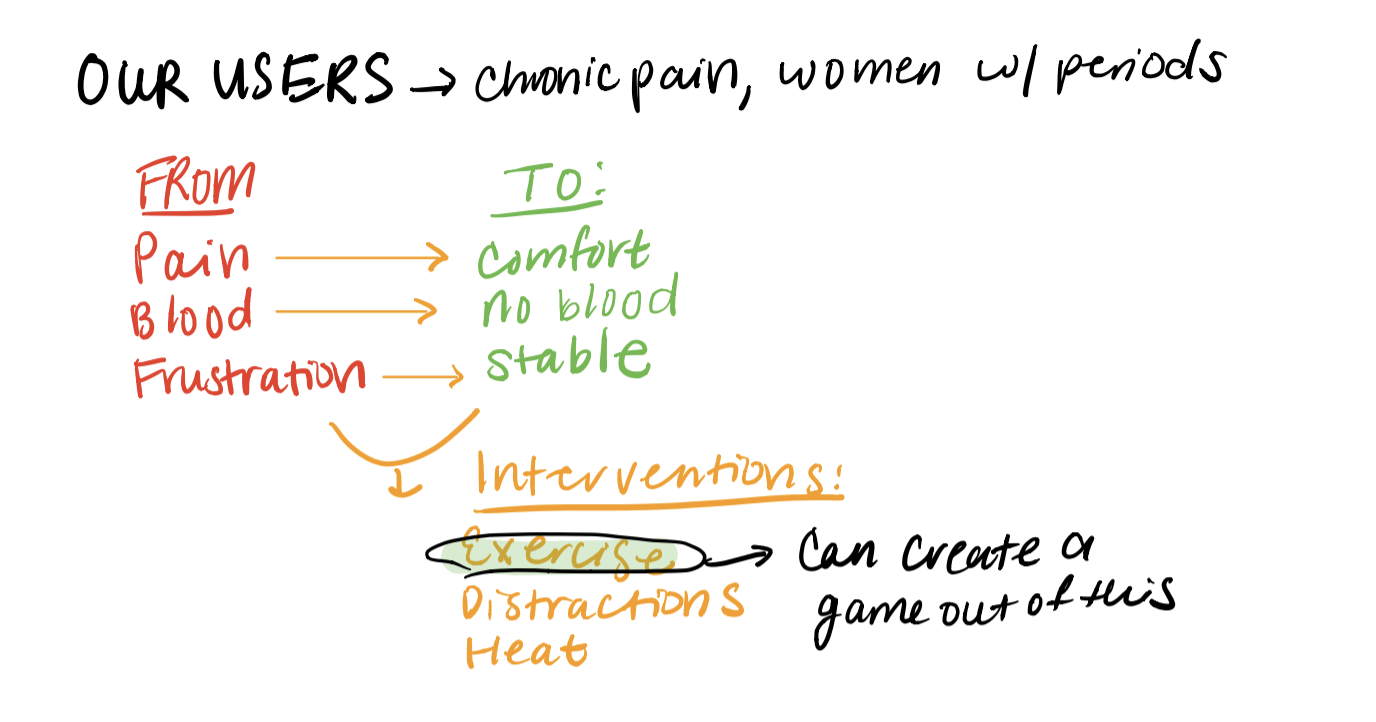 OUR USERS → chronic pain, women w/ periods
FROM TO:
Pain → comfort
Blood → no blood
Frustration → stable
Interventions:
Exercise → Can create a
game out of this
Distractions
Heat